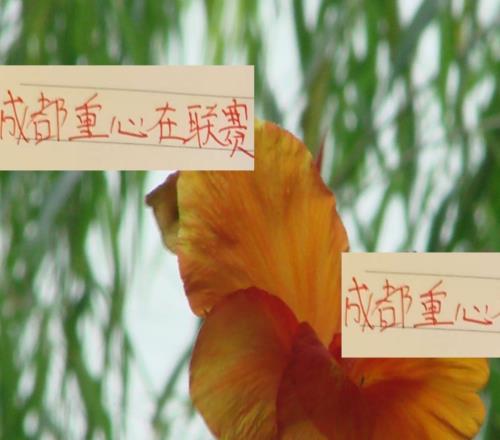 成都重心在联赛
成都重心